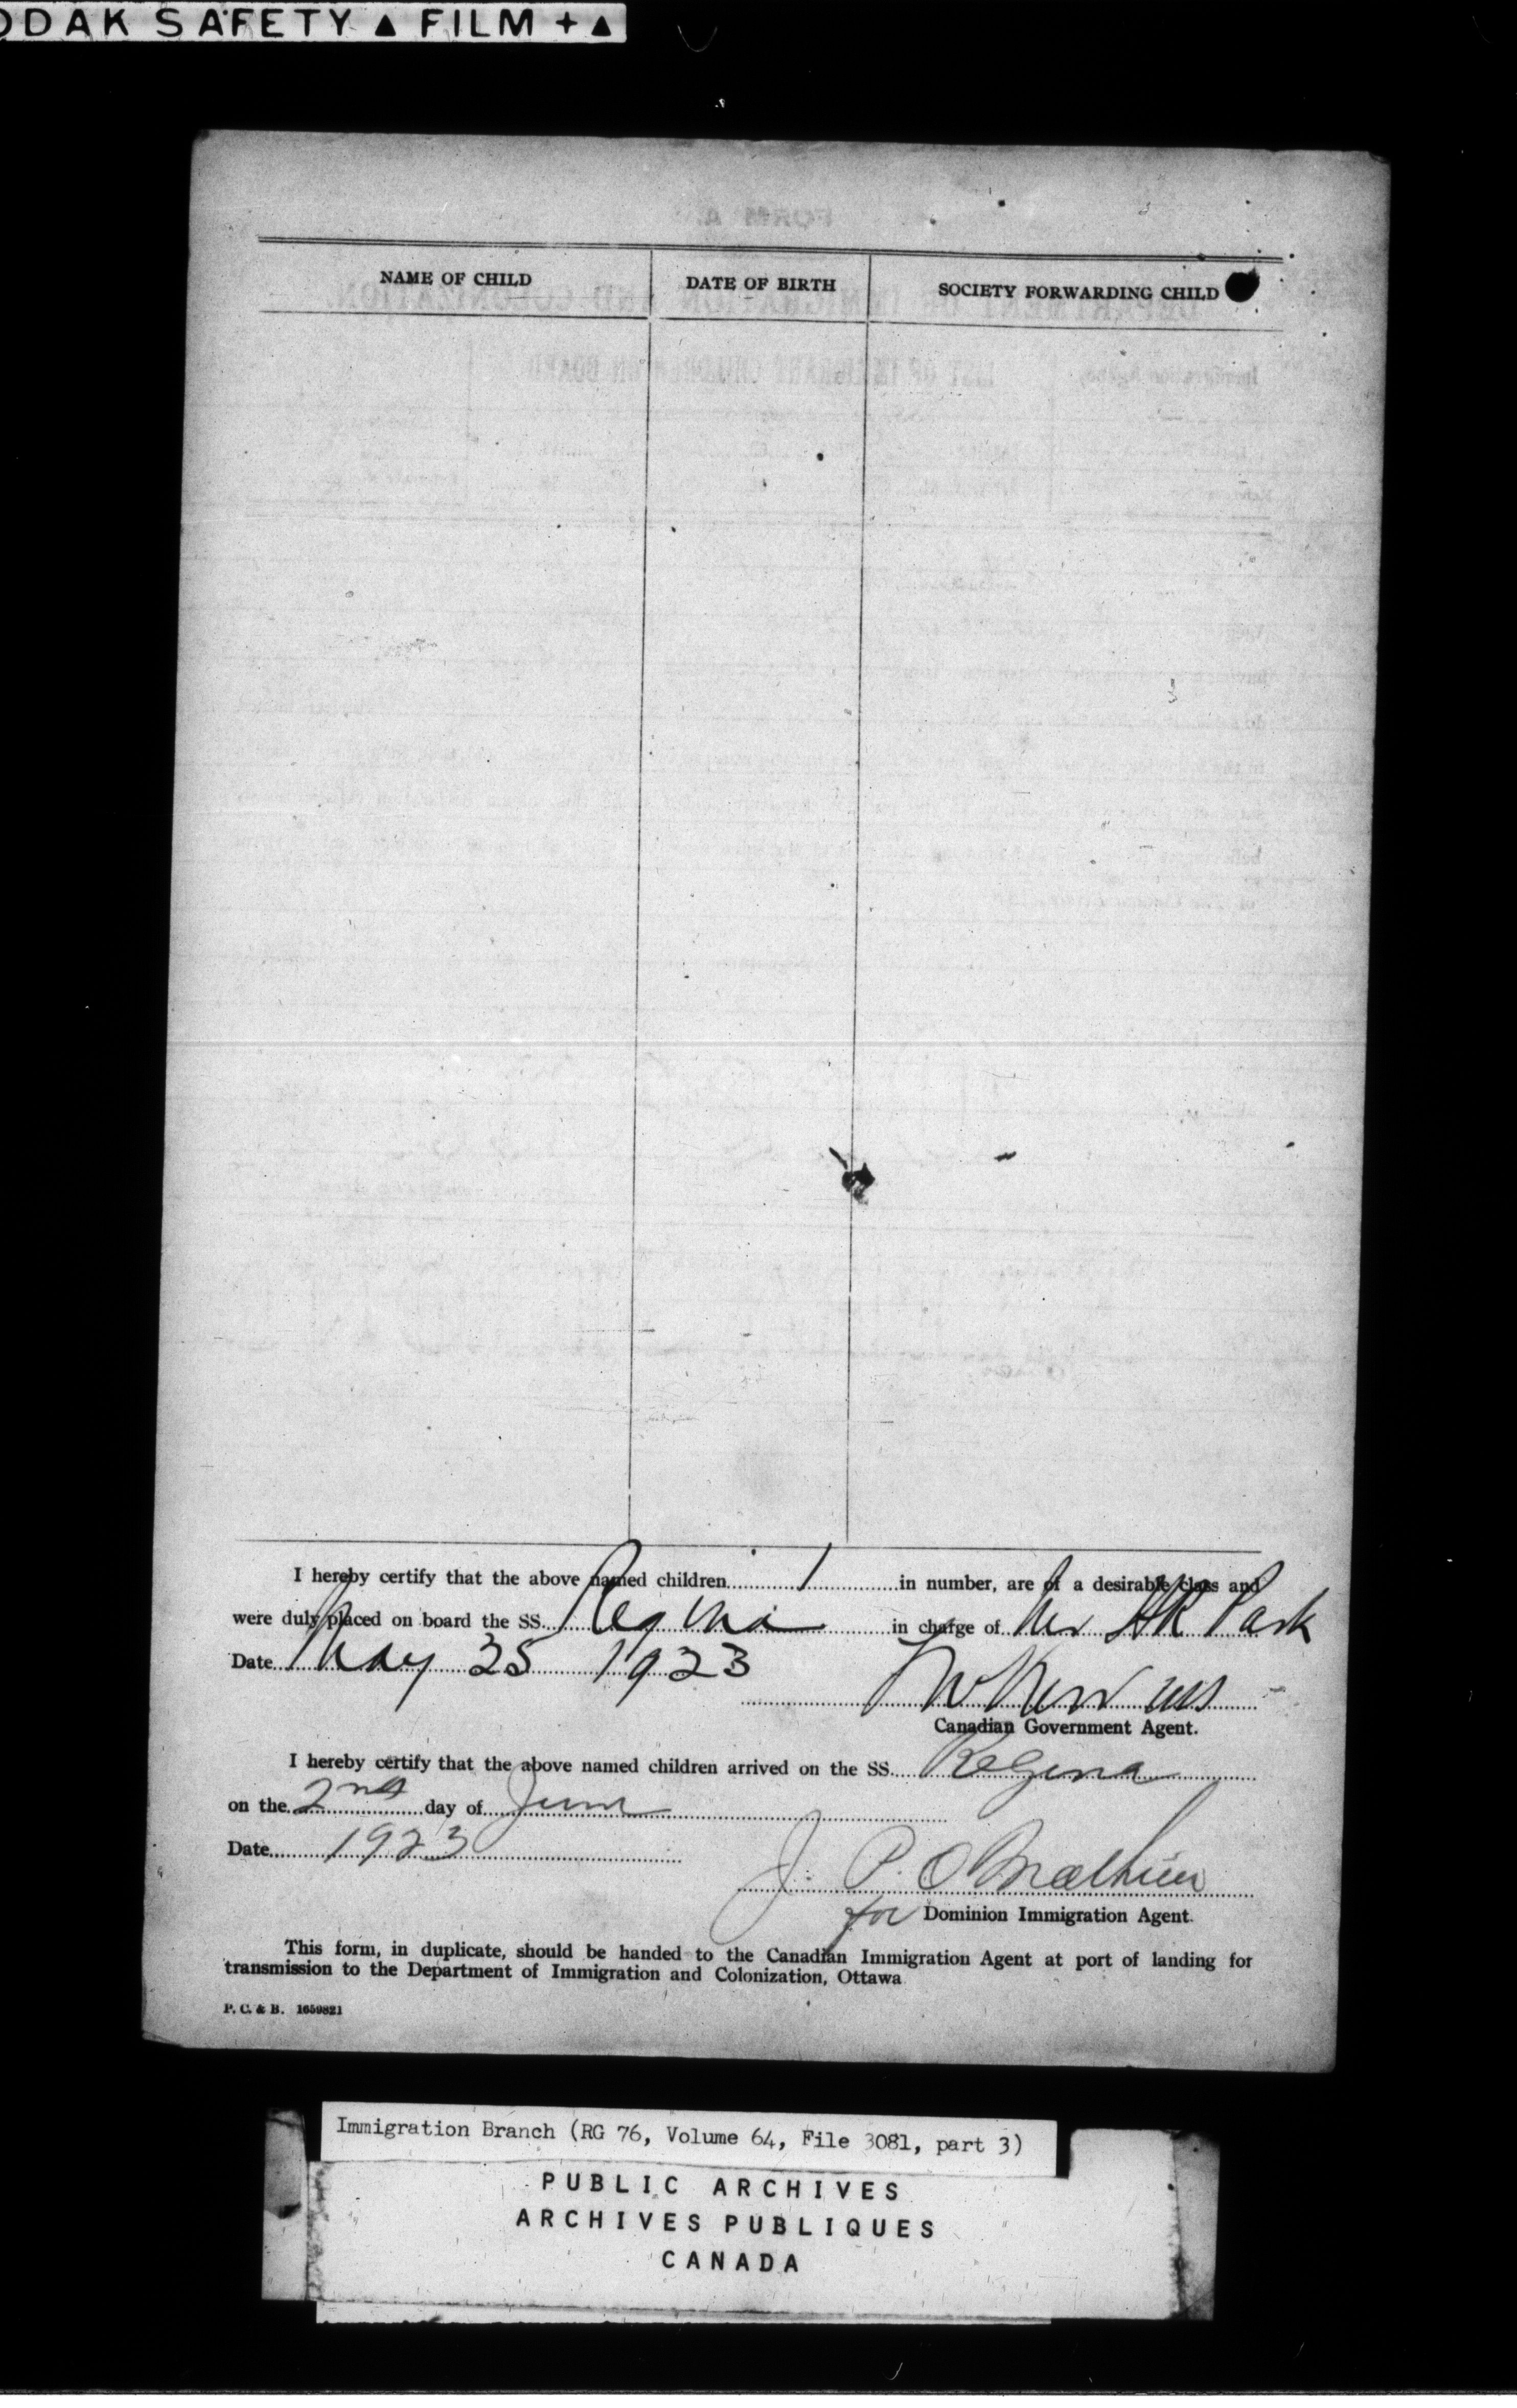 ODAK SAFETY ▲ FILM + ▲
NAME OF CHILD DATE OF BIRTH SOCIETY FORWARDING CHILD
I hereby certify that the above named children 1 in number, are of a desirable class and
were duly placed on board the SS. Regina in charge of Mr Park
Date May 25 1923
Canadian Government Agent.
I hereby certify that the above named children arrived on the SS. Regina
on the 2nd day of June
Date 1923
J. P. O
for Dominion Immigration Agent.
This form, in duplicate, should be handed to the Canadian Immigration Agent at port of landing for
transmission to the Department of Immigration and Colonization, Ottawa
P. C. & B. 1659821
Immigration Branch (RG 76, Volume 64, File 3081, part 3)
PUBLIC ARCHIVES
ARCHIVES PUBLIQUES
CANADA